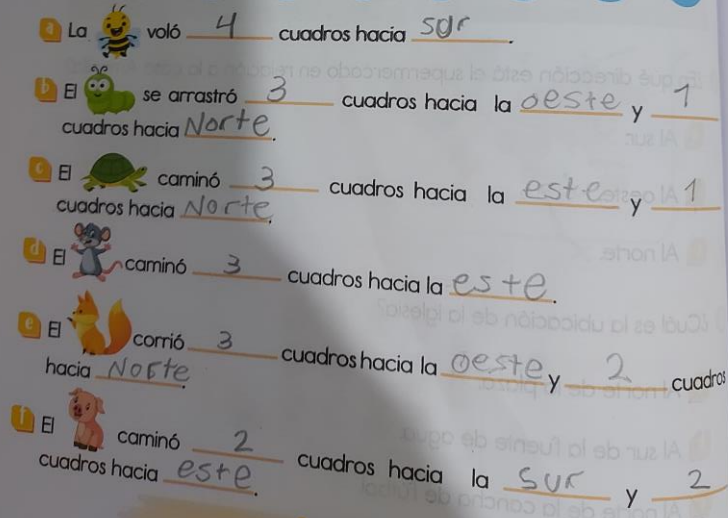 a La voló 4 cuadros hacia sur.
b El se arrastró 3 cuadros hacia la oeste y 1
cuadros hacia Norte.
c El caminó 3 cuadros hacia la este y 1
cuadros hacia Norte.
d El caminó 3 cuadros hacia la este.
e El corrió 3 cuadros hacia la oeste y 2 cuadros
hacia Norte.
f El caminó 2 cuadros hacia la sur y 2
cuadros hacia este.